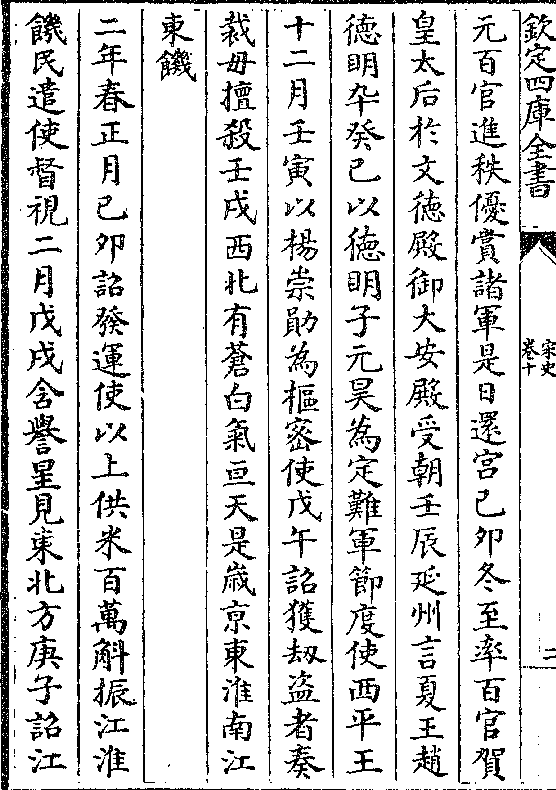 欽定四庫全書
宋史
卷十
二
元百官進秩優賞諸軍是日還宫已卯冬至率百官賀
皇太后於文徳殿御大安殿受朝壬辰延州言夏王趙
徳明卒癸已以徳明子元昊為定難軍節度使西平王
十二月壬寅以楊崇勛為樞宻使戊午詔獲劫盗者奏
裁毋擅殺壬戌西北有蒼白氣亘天是嵗京東淮南江
東饑
二年春正月已卯詔發運使以上供米百萬斛振江淮
饑民遣使督視二月戊戌含譽星見東北方庚子詔江